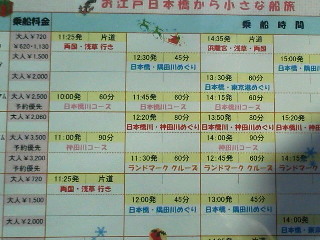 お江戸日本橋から小さな船旅
乗船料金 乗船時間
大人¥720 11:25発 片道 14:35発 片道
¥620・1,130 両国・浅草 行き 浜離宮・両国・浅草
大人¥1,500 12:30発 45分 15:00発
日本橋・隅田川めぐり 日本橋・隅田
大人¥2,000 13:30発 60分
日本橋・東京港めぐり
大人¥2,500 10:00発 60分 11:45発 60分 14:15発 60分
予約優先 日本橋川コース 日本橋川コース 日本橋川コース
大人¥2,060 12:20発 80分 13:50発 80分 15:20発
日本橋・神田川めぐり 日本橋・神田川めぐり 日本橋・神田
大人¥3,500 11:00発 90分 14:00発 90分
予約優先 神田川コース 神田川コース
大人¥3,200 11:30発 60分 12:45発 60分 14:15発
予約優先 ランドマーク クルーズ ランドマーク クルーズ ランドマーク
大人¥720 11:25発 片道
両国・浅草 行き
大人¥1,500 12:00発 45分 13:00発 45分
日本橋・隅田川めぐり 日本橋・隅田川めぐり
大人¥2,000 14:00発
日本橋・東